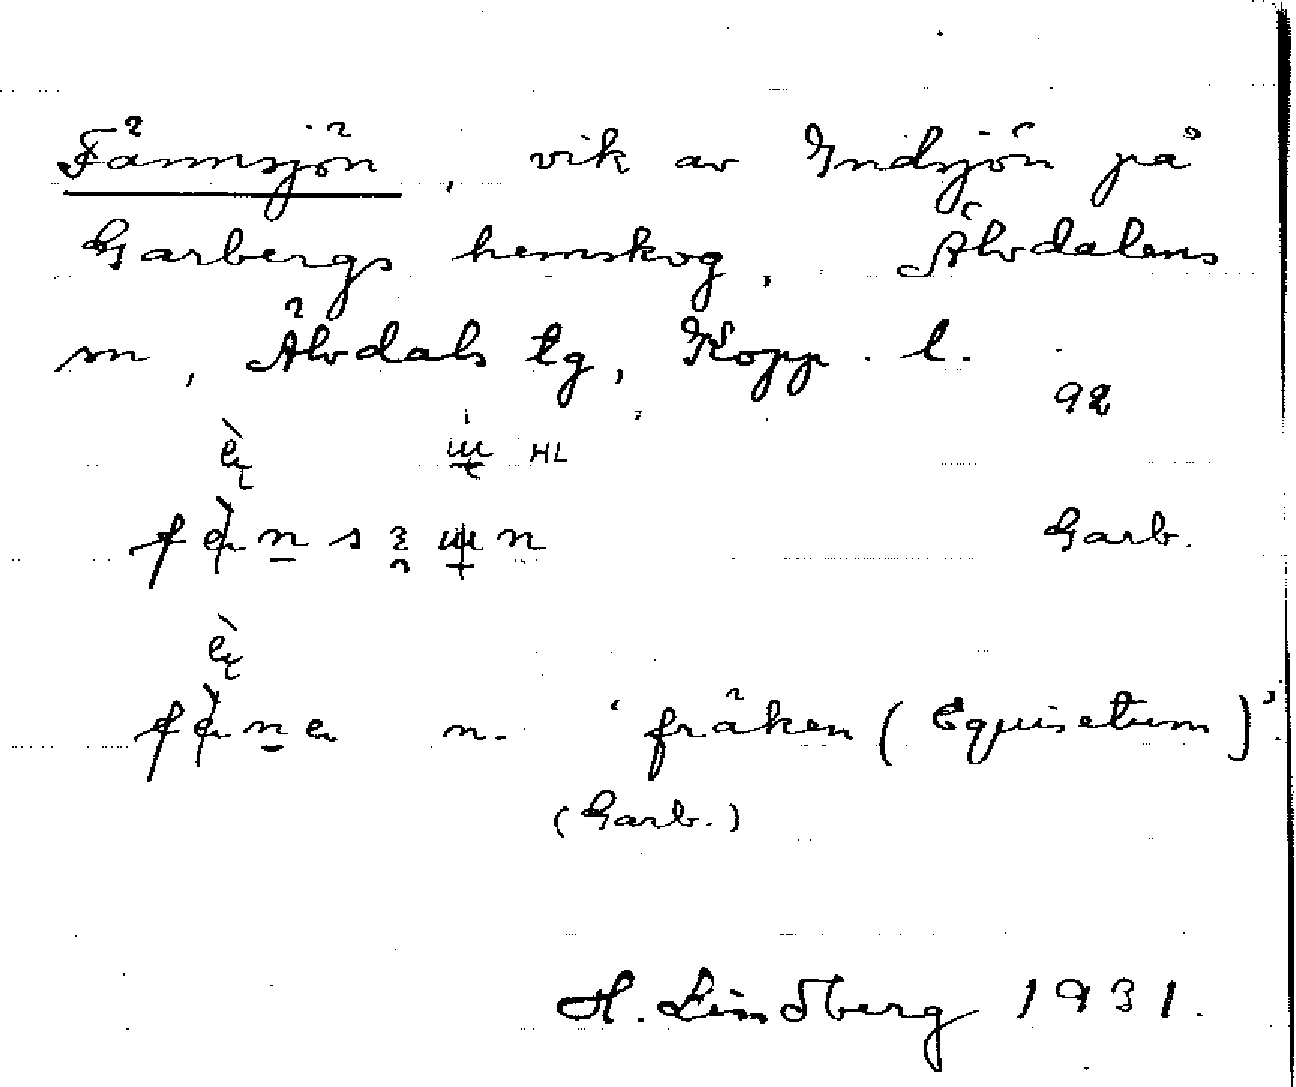 Fännsjön, vik av Indsjön på
Garbergs hemskog, Älvdalens
sn, Älvdals tg, Kopp. l.
92
HL
Garb.
n. 'fräken (Equisetum)'
(Garb.)
H. Lindberg 1931.